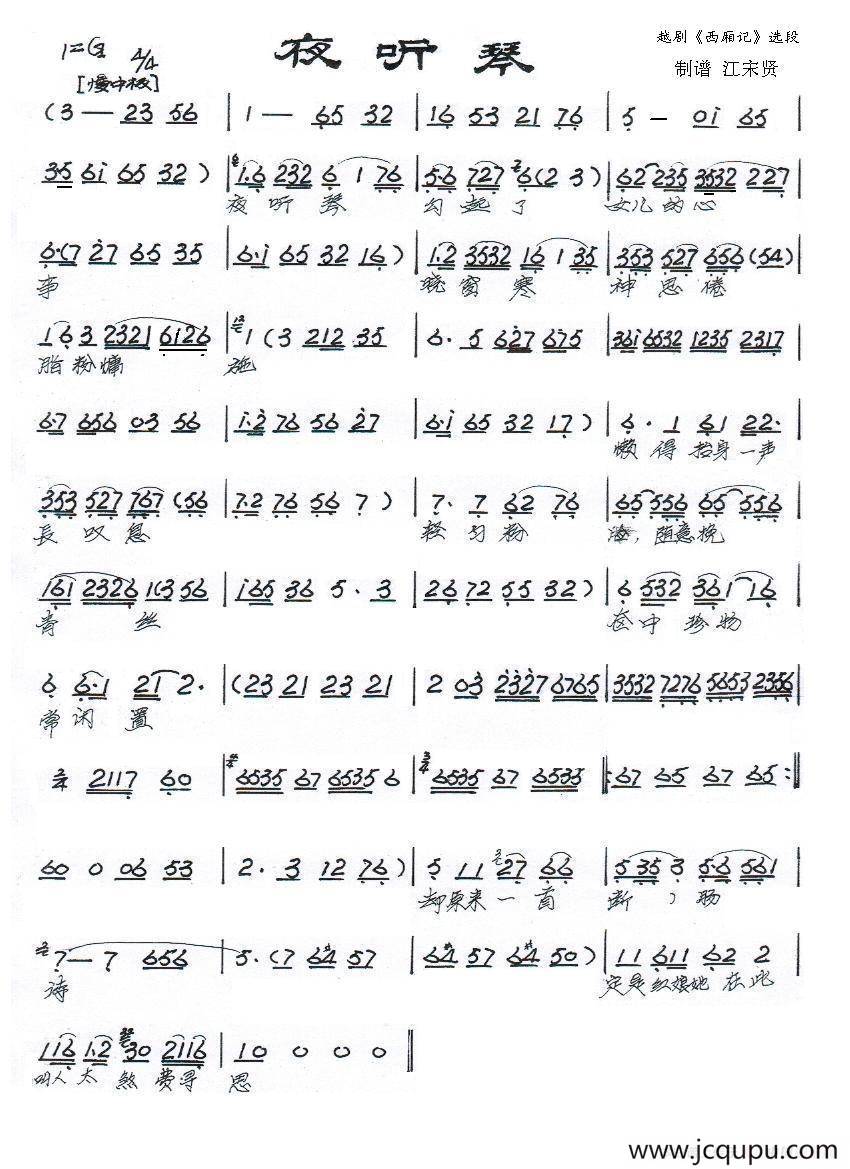 夜听琴
越剧《西厢记》选段
制谱 江宋贤
1=G 4/4
[慢中板]
(3 — 23 56 | 1 — 65 32 | 16 53 21 76 | 5 — 0i 65 |
35 6i 65 32 ) | 1·6 232 6 1 76 | 5·6 727 6(2 3) | 62 235 3532 227 |
夜听琴 勾起了 女儿的心
6·(7 27 65 35 | 6·i 65 32 16 ) | 1·2 3532 16 1 35 | 353 527 656 (54) |
事 晓窗寒 神思倦
1 6 3 2321 6126 | 1 (3 212 35 | 6· 5 627 675 | 36i 6532 1235 2317 |
脂粉慵 施
6·7 656 03 56 | i·2 76 56 27 | 6·i 65 32 17 ) | 6· 1 61 22· |
懒得抬身一声
353 527 767 (56 | 7·2 76 56 7 ) | 7· 7 62 76 | 65 556 65 556 |
長叹息 轻匀粉 随意挽
161 2326 1(3 56 | i65 36 5· 3 | 26 72 55 32 ) | 6 532 361 116 |
青丝 奁中珍物
6 6·1 21 2· | (23 21 23 21 | 2 03 2327 6765 | 3532 7276 5653 2356 |
常闲置
2/4 2117 60 | 6535 67 6535 6 | 3/4 6535 67 6535 |: 67 65 67 65 :||
60 0 06 53 | 2· 3 12 76 ) | 5 11 27 66 | 5 35 3 5·6 561 |
却原来一首 断 肠
7 — 7 656 | 5· (7 64 57 | 64 57 64 50 ) | 11 611 62 2 |
诗 定是红娘她在此
116 1·2 30 2116 | 10 0 0 0 ||
叫人太煞费寻 思
www.jcqupu.com